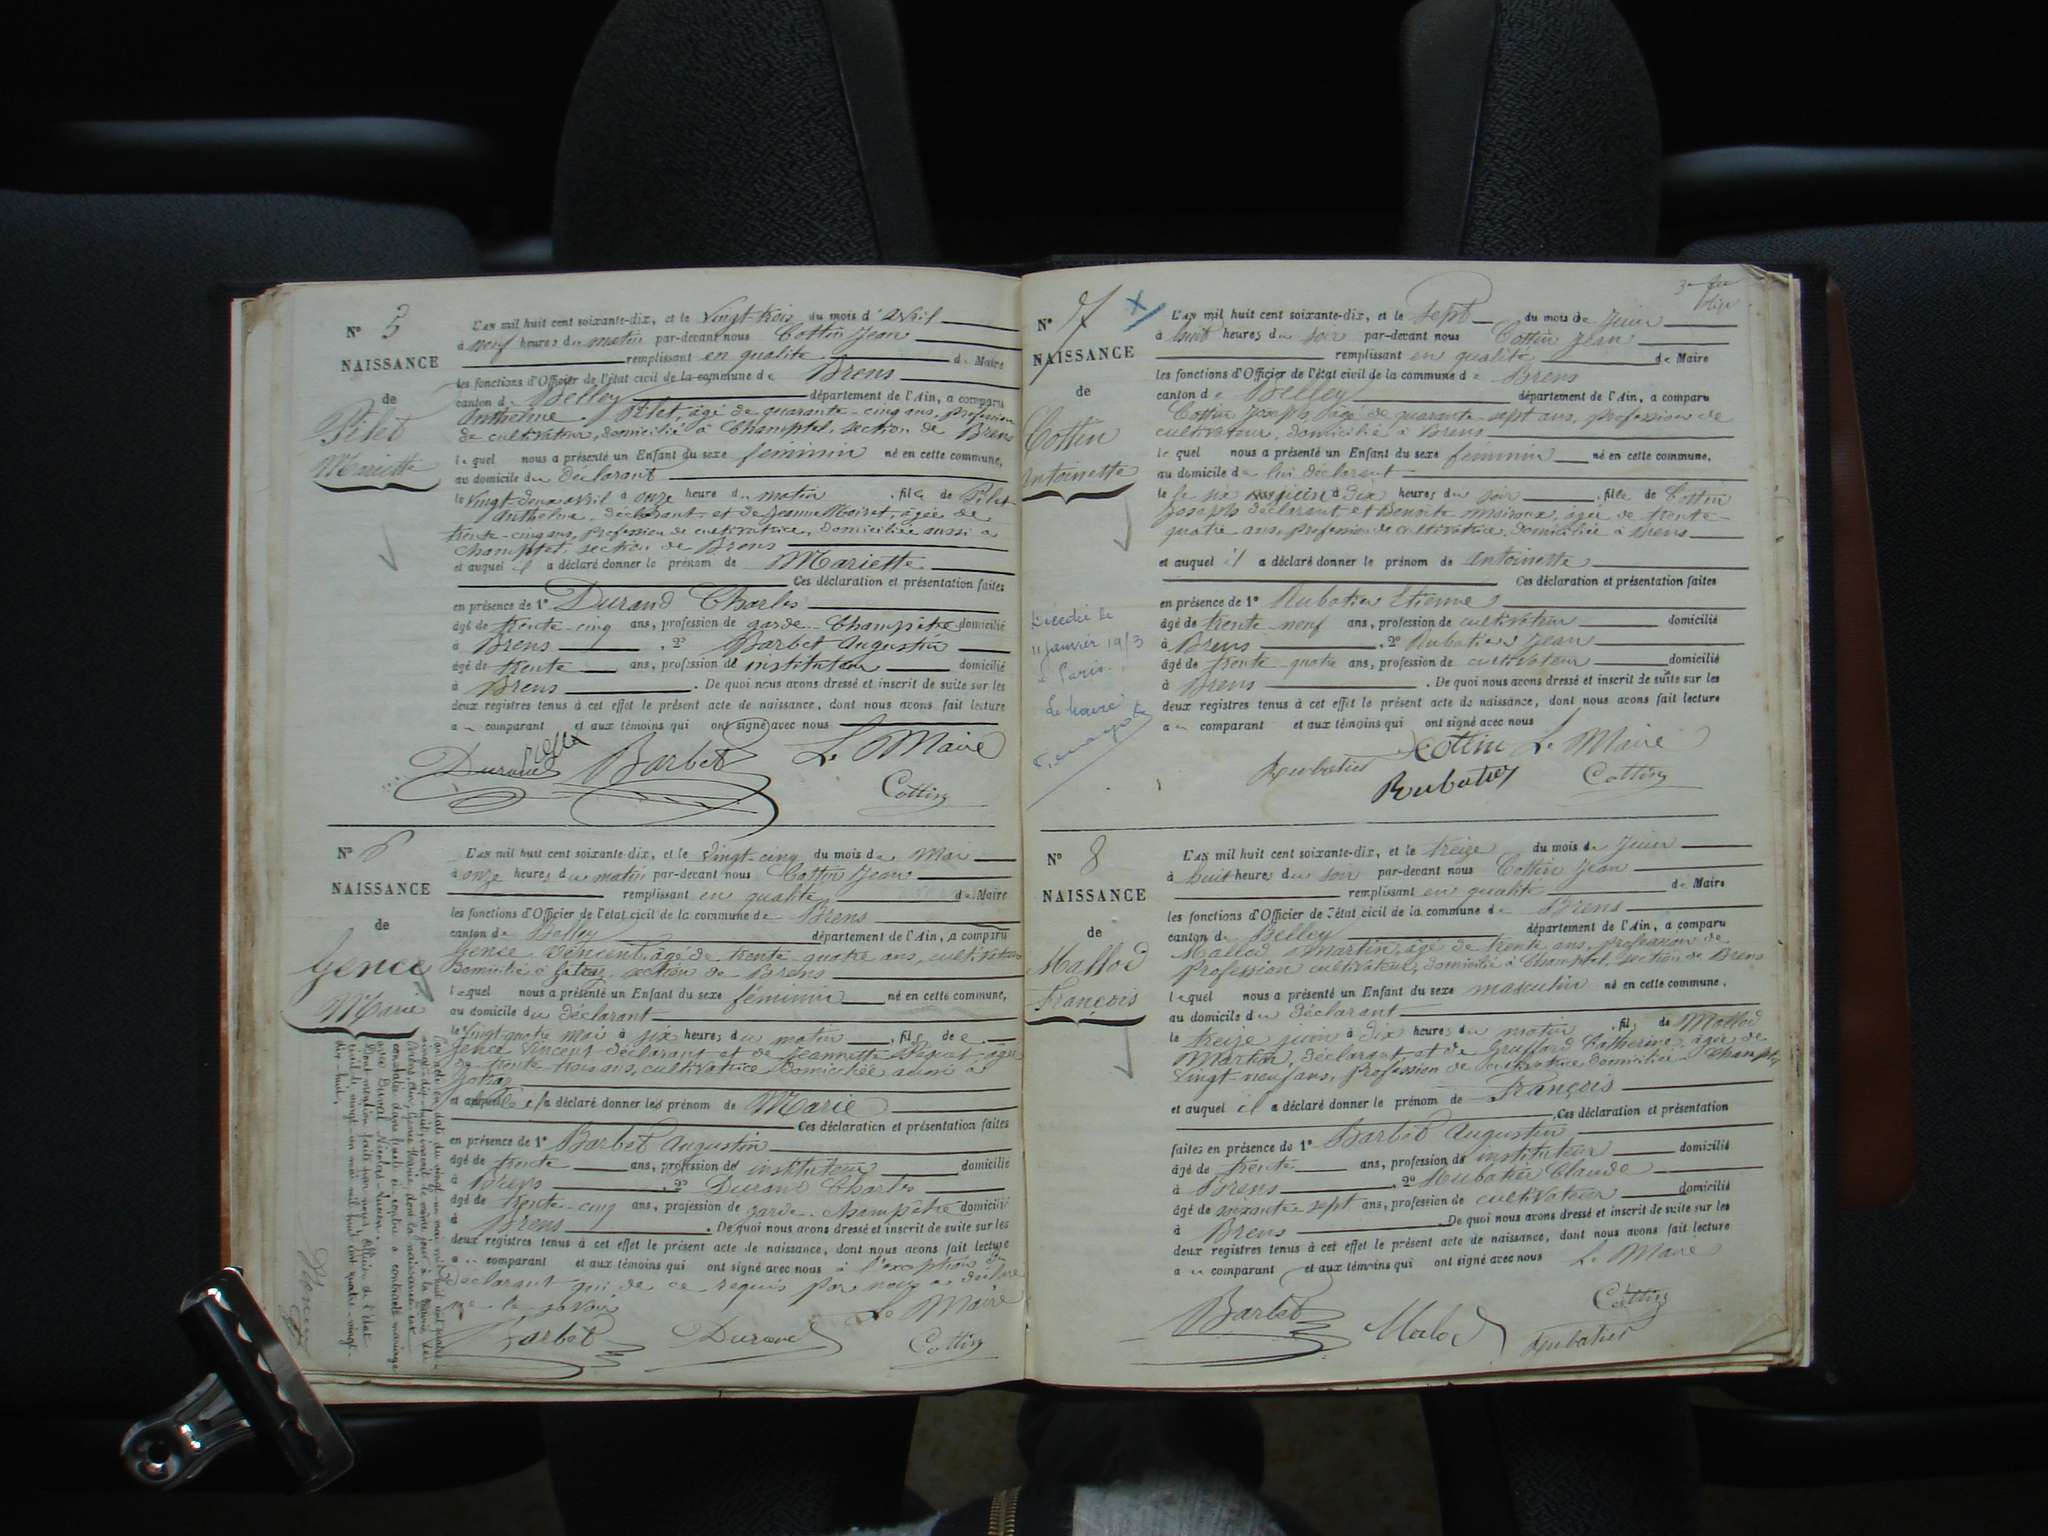 N° 5
NAISSANCE
de
Pilet
Mariette
L'AN mil huit cent soixante-dix, et le Vingt-trois du mois d'Avril
à neuf heures du matin par-devant nous Cottin Jean
remplissant en qualité de Maire
les fonctions d'Officier de l'état civil de la commune de Brens
canton de Belley département de l'Ain, a comparu
Anthelme Pilet, âgé de quarante-cinq ans, profession
de cultivateur, domicilié à Champtel, section de Brens
lequel nous a présenté un Enfant du sexe féminin né en cette commune,
au domicile du déclarant
le vingt-deux avril à onze heure du matin, fille de Pilet
Anthelme, déclarant et de Jeanne Moiret, âgée de
trente-cinq ans, profession de cultivatrice, domiciliée aussi à
Champtel, section de Brens
et auquel il a déclaré donner le prénom de Mariette
Ces déclaration et présentation faites
en présence de 1° Durand Charles
âgé de trente-cinq ans, profession de garde-Champêtre domicilié
à Brens, 2° Barbet Augustin
âgé de trente ans, profession d'instituteur domicilié
à Brens. De quoi nous avons dressé et inscrit de suite sur les
deux registres tenus à cet effet le présent acte de naissance, dont nous avons fait lecture
au comparant et aux témoins qui ont signé avec nous
Durand Barbet Le Maire
Cottin
N° 6
NAISSANCE
de
Gence
Marie
L'AN mil huit cent soixante-dix, et le vingt-cinq du mois de Mai
à onze heures du matin par-devant nous Cottin Jean
remplissant en qualité de Maire
les fonctions d'Officier de l'état civil de la commune de Brens
canton de Belley département de l'Ain, a comparu
Gence Vincent, âgé de trente-quatre ans, cultivateur
domicilié à section de Brens
lequel nous a présenté un Enfant du sexe féminin né en cette commune,
au domicile du déclarant
le vingt-quatre mai à six heures du matin, fille de
Gence Vincent déclarant et de Jeannette âgée
de trente-trois ans, cultivatrice domiciliée aussi à
il a déclaré donner les prénom de Marie
Ces déclaration et présentation faites
en présence de 1° Barbet Augustin
âgé de trente ans, profession d'instituteur domicilié
à Brens, 2° Durand Charles
âgé de trente-cinq ans, profession de garde-champêtre domicilié
à Brens. De quoi nous avons dressé et inscrit de suite sur les
deux registres tenus à cet effet le présent acte de naissance, dont nous avons fait lecture
au comparant et aux témoins qui ont signé avec nous à l'exception du
déclarant qui de ce requis par nous a déclaré
ne le savoir Le Maire
Barbet Durand Cottin
N° 7
NAISSANCE
de
Cottin
Antoinette
Décédée le
11 janvier 19/3
à Paris
Le maire
L'AN mil huit cent soixante-dix, et le Sept du mois de Juin
à huit heures du soir par-devant nous Cottin Jean
remplissant en qualité de Maire
les fonctions d'Officier de l'état civil de la commune de Brens
canton de Belley département de l'Ain, a comparu
Cottin Joseph âgé de quarante-sept ans, profession de
cultivateur, domicilié à Brens
lequel nous a présenté un Enfant du sexe féminin né en cette commune,
au domicile de lui déclarant
le six juin à dix heures du soir, fille de Cottin
Joseph déclarant et Benoite âgée de trente-
quatre ans, profession de cultivatrice, domiciliée à Brens
et auquel il a déclaré donner le prénom de Antoinette
Ces déclaration et présentation faites
en présence de 1° Rubatier Etienne
âgé de trente-neuf ans, profession de cultivateur domicilié
à Brens, 2° Rubatier Jean
âgé de trente-quatre ans, profession de cultivateur domicilié
à Brens. De quoi nous avons dressé et inscrit de suite sur les
deux registres tenus à cet effet le présent acte de naissance, dont nous avons fait lecture
au comparant et aux témoins qui ont signé avec nous
Cottin Le Maire
Rubatier Rubatier Cottin
N° 8
NAISSANCE
de
Mallod
François
L'AN mil huit cent soixante-dix, et le treize du mois de Juin
à huit heures du soir par-devant nous Cottin Jean
remplissant en qualité de Maire
les fonctions d'Officier de l'état civil de la commune de Brens
canton de Belley département de l'Ain, a comparu
Mallod Martin, âgé de trente ans, profession de
profession cultivateur, domicilié à Champtel, section de Brens
lequel nous a présenté un Enfant du sexe masculin né en cette commune,
au domicile du déclarant
le treize juin à dix heures du matin, fils de Mallod
Martin, déclarant et de Gruffard Catherine, âgée de
vingt-neuf ans, profession de cultivatrice domiciliée à Champtel
et auquel il a déclaré donner le prénom de François
Ces déclaration et présentation
faites en présence de 1° Barbet Augustin
âgé de trente ans, profession d'instituteur domicilié
à Brens, 2° Rubatier Claude
âgé de soixante-sept ans, profession de cultivateur domicilié
à Brens. De quoi nous avons dressé et inscrit de suite sur les
deux registres tenus à cet effet le présent acte de naissance, dont nous avons fait lecture
au comparant et aux témoins qui ont signé avec nous Le Maire
Cottin
Barbet Malod Rubatier